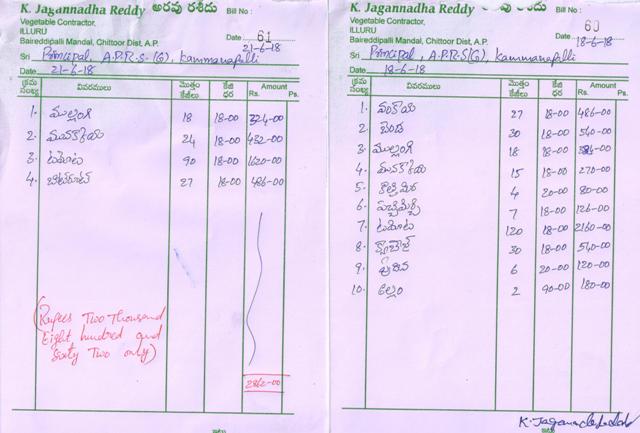 K. Jagannadha Reddy అరవు రశీదు Bill No :
Vegetable Contractor,
ILLURU
Baireddipalli Mandal, Chittoor Dist, A.P.
Date 61
21-6-18
Sri Principal, A.P.R.S (G), Kammanapalli
Date 21-6-18
క్రమ సంఖ్య వివరములు మొత్తం కేజీలు కేజి ధర Amount Rs. Ps.
1. ముల్లంగి 18 18-00 324-00
2. మునకాయ 24 18-00 432-00
3. టమోటా 90 18-00 1620-00
4. బీట్‌రూట్ 27 18-00 486-00
(Rupees Two Thousand
Eight hundred and
Sixty Two only)
2862-00
K. Jagannadha Reddy రశీదు Bill No :
Vegetable Contractor,
ILLURU
Baireddipalli Mandal, Chittoor Dist, A.P.
Date 60
18-6-18
Sri Principal, A.P.R.S(G), Kammanapalli
Date 18-6-18
క్రమ సంఖ్య వివరములు మొత్తం కేజీలు కేజి ధర Amount Rs. Ps.
1. వంకాయ 27 18-00 486-00
2. బెండ 30 18-00 540-00
3. ముల్లంగి 18 18-00 324-00
4. మునకాయ 15 18-00 270-00
5. కొత్తిమిర 4 20-00 80-00
6. పచ్చిమిర్చి 7 18-00 126-00
7. టమోటా 120 18-00 2160-00
8. క్యాబేజి 30 18-00 540-00
9. పుదిన 6 20-00 120-00
10. అల్లం 2 90-00 180-00
K. Jagannadha Reddy